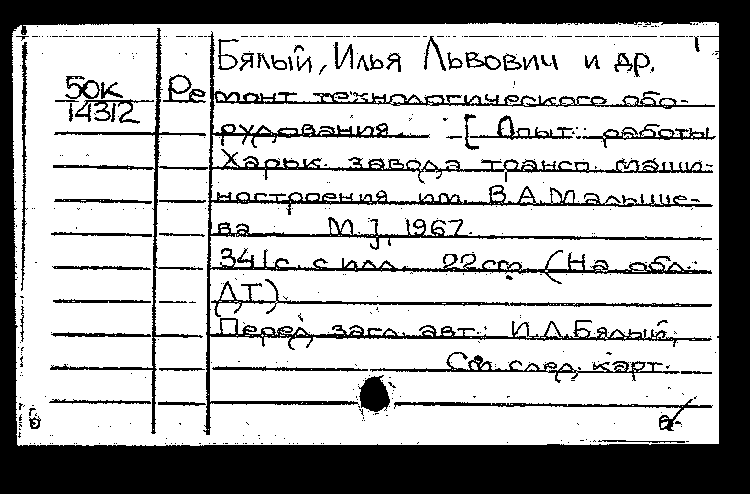 1
Бялый, Илья Львович и др.
50К
14312
Ремонт технологического обо-
рудования. - [Опыт работы
Харьк. завода трансп. маши-
ностроения им. В.А.Малыше-
ва М.], 1967.
341с. с илл. 22см (На обл.:
Л,Т.)
Перед загл. авт.: И.Л.Бялый,
См. след. карт.